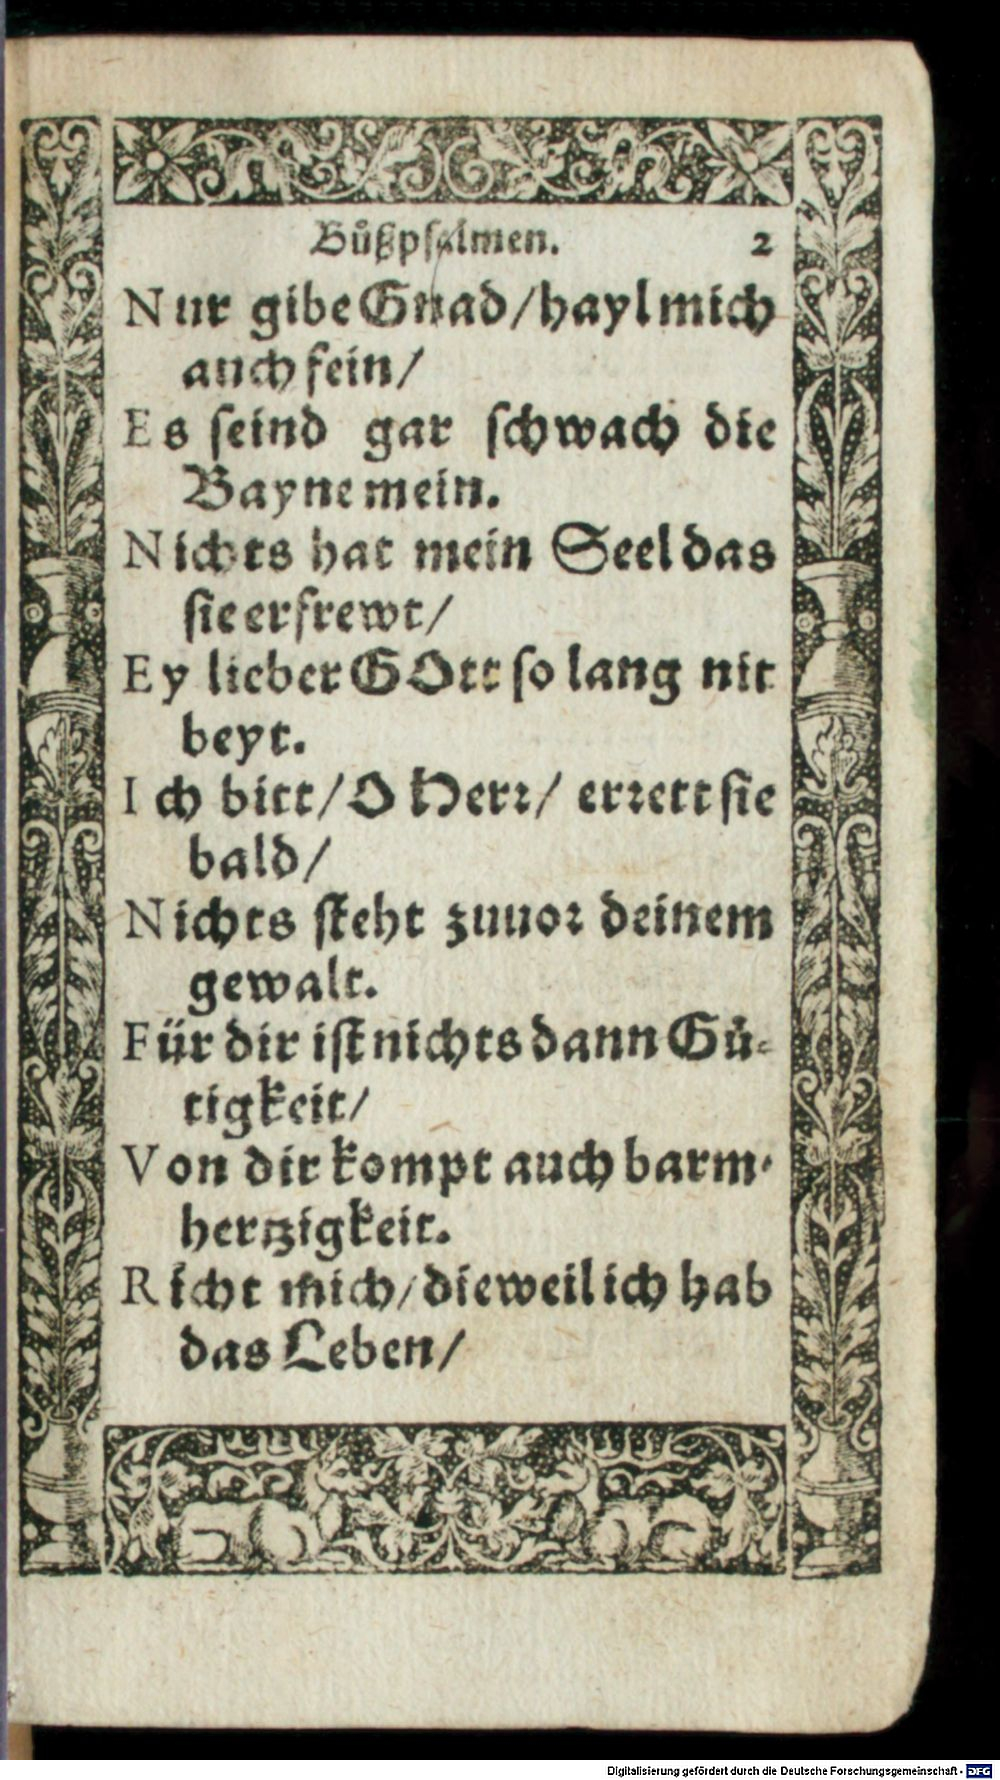 Bůßpſalmen. 2
Nur gibe Gnad/hayl mich
auch fein/
Es ſeind gar ſchwach die
Bayne mein.
Nichts hat mein Seel das
ſie erfrewt/
Ey lieber GOtt ſo lang nit
beyt.
Ich bitt/O Herꝛ/ erꝛett ſie
bald/
Nichts ſteht zuuoꝛ deinem
gewalt.
Für dir iſt nichts dann Gů⸗
tigkeit/
Von dir kompt auch barm⸗
hertzigkeit.
Richt mich/dieweil ich hab
das Leben/
Digitalisierung gefördert durch die Deutsche Forschungsgemeinschaft - DFG